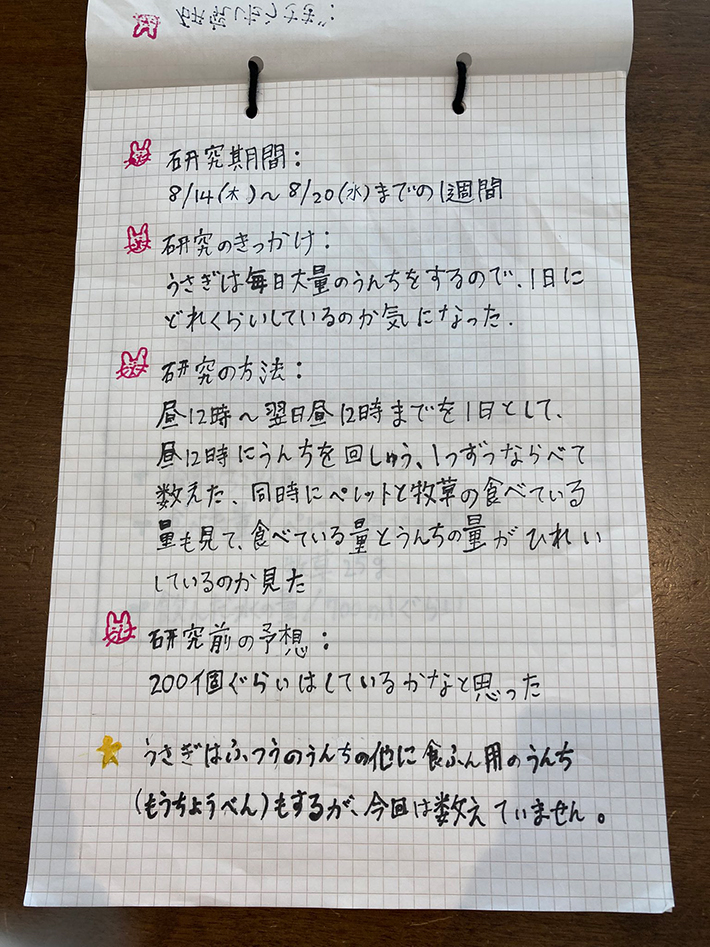 研究期間：
8/14(木)～8/20(水)までの1週間
研究のきっかけ：
うさぎは毎日大量のうんちをするので、1日に
どれくらいしているのか気になった.
研究の方法：
昼12時～翌日昼12時までを1日として、
昼12時にうんちを回しゅう、1つずつならべて
数えた、同時にペレットと牧草の食べている
量も見て、食べている量とうんちの量がひれい
しているのか見た
研究前の予想：
200個ぐらいはしているかなと思った
うさぎはふつうのうんちの他に食ふん用のうんち
(もうちょうべん)もするが、今回は数えていません。